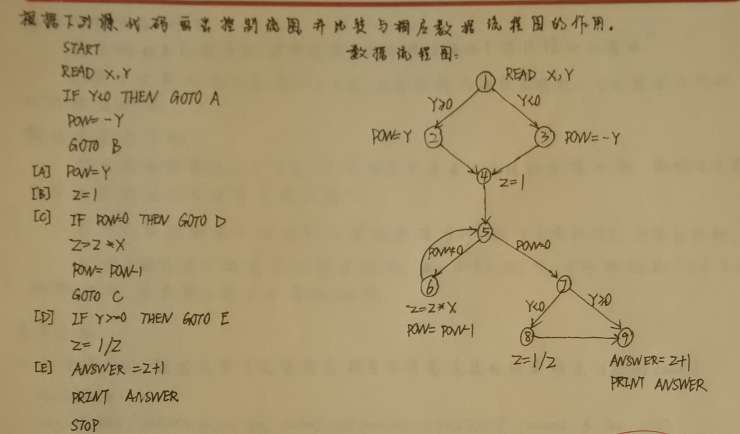 根据下列源代码画出控制流图,并比较与相应数据流程图的作用.
数据流程图:
START
READ X,Y
IF Y<0 THEN GOTO A
POW=-Y
GOTO B
[A] POW=Y
[B] Z=1
[C] IF POW=0 THEN GOTO D
Z=Z*X
POW=POW-1
GOTO C
[D] IF Y>=0 THEN GOTO E
Z=1/Z
[E] ANSWER=Z+1
PRINT ANSWER
STOP
① READ X,Y
Y≥0 Y<0
POW=Y ② ③ POW=-Y
④ Z=1
⑤
POW≠0 POW=0
⑥ ⑦
Z=Z*X
POW=POW-1
Y<0 Y≥0
⑧ ⑨
Z=1/Z ANSWER=Z+1
PRINT ANSWER